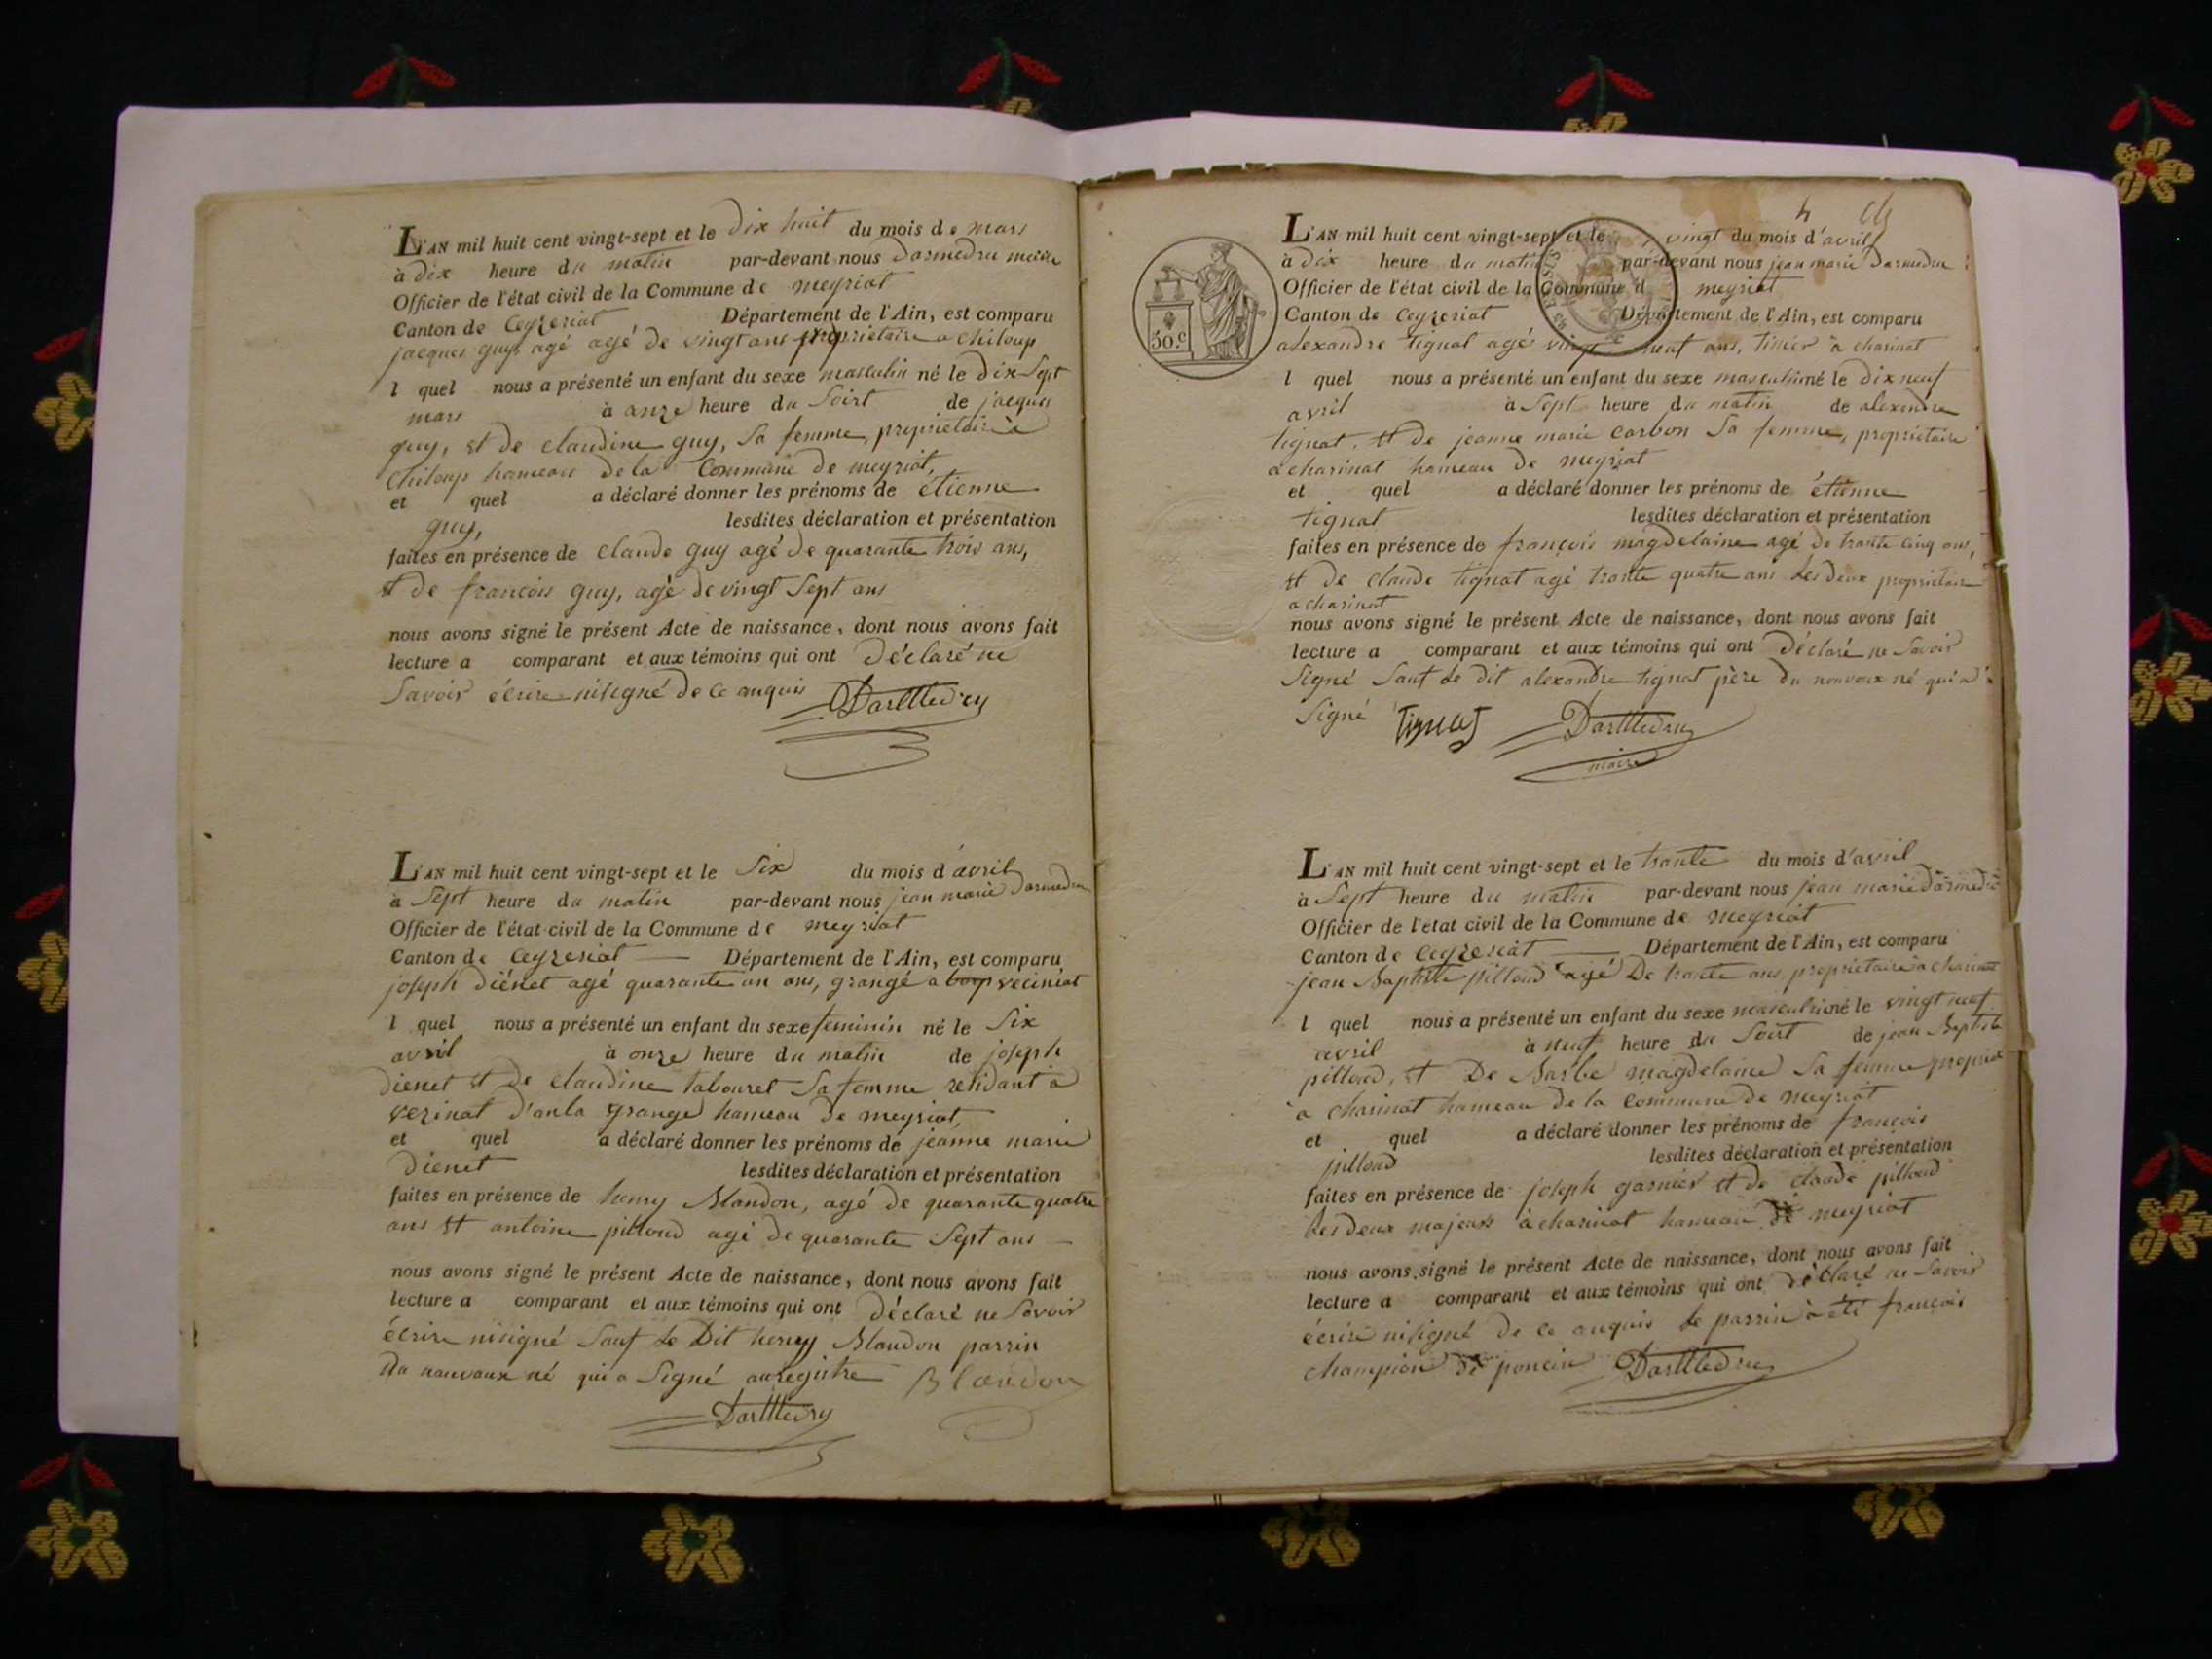 L'AN mil huit cent vingt-sept et le dix huit du mois de mars
à dix heure du matin par-devant nous darmedru maire
Officier de l'état civil de la Commune de meyriat
Canton de Ceyzeriat Département de l'Ain, est comparu
jacques guy, agé agé de vingt ans propriétaire a chiloup
l quel nous a présenté un enfant du sexe masculin né le dix-sept
mars à onze heure du soirt de jacques
guy, et de claudine guy, sa femme, propriétaire à
chiloup hameau de la Commune de meyriat,
et quel a déclaré donner les prénoms de étienne
guy, lesdites déclaration et présentation
faites en présence de claude guy agé de quarante trois ans,
et de françois guy, agé de vingt sept ans
nous avons signé le présent Acte de naissance, dont nous avons fait
lecture a comparant et aux témoins qui ont déclaré ne
savoir écrire ni signé de ce anquis Darmedru
L'AN mil huit cent vingt-sept et le six du mois d'avril
à sept heure du matin par-devant nous jean marie darmedru
Officier de l'état civil de la Commune de meyriat
Canton de Ceyzeriat Département de l'Ain, est comparu
joseph diénet agé quarante un ans, grangé a veciniat
l quel nous a présenté un enfant du sexe feminin né le six
avril à onze heure du matin de joseph
dienet et de claudine tabouret sa femme residant à
vezinat d'anla grange hameau de meyriat,
et quel a déclaré donner les prénoms de jeanne marie
dienet lesdites déclaration et présentation
faites en présence de henry Blandon, agé de quarante quatre
ans et antoine pilloud agé de quarante sept ans
nous avons signé le présent Acte de naissance, dont nous avons fait
lecture a comparant et aux témoins qui ont déclaré ne savoir
écrire ni signé sauf le dit henry Blandon parrin
du nauvaux né qui a signé au registre Blandon
Darmedru
4
50.c
L'AN mil huit cent vingt-sept et le vingt du mois d'avril
à dix heure du matin par-devant nous jean marie darmedru
Officier de l'état civil de la Commune d meyriat
Canton de Ceyzeriat Département de l'Ain, est comparu
alexandre tignat agé vingt neuf ans, tissier à charinat
l quel nous a présenté un enfant du sexe masculin né le dix neuf
avril à sept heure du matin de alexandre
tignat, et de jeanne marie carbon sa femme, propriétaire
a charinat hameau de meyriat
et quel a déclaré donner les prénoms de étienne
tignat lesdites déclaration et présentation
faites en présence de françois magdelaine agé de trante cinq ans,
et de claude tignat agé trante quatre ans les deux propriétaire
a charinat
nous avons signé le présent Acte de naissance, dont nous avons fait
lecture a comparant et aux témoins qui ont déclaré ne savoir
signé sauf le dit alexandre tignat père du nouvaux né qui a
signé Tignat Darmedru
maire
L'AN mil huit cent vingt-sept et le trante du mois d'avril
à sept heure du matin par-devant nous jean marie darmedru
Officier de l'état civil de la Commune de meyriat
Canton de Ceyzeriat Département de l'Ain, est comparu
jean Baptiste pilloud agé de trante ans propriétaire a charinat
l quel nous a présenté un enfant du sexe masculin né le vingt neuf
avril à neuf heure du soirt de jean Baptiste
pilloud, et de Barbe magdelaine sa femme propriet
a charinat hameau de la commune de meyriat
et quel a déclaré donner les prénoms de françois
pilloud lesdites déclaration et présentation
faites en présence de joseph garnier et de claude pilloud
les deux majeurs à charinat hameau de meyriat
nous avons signé le présent Acte de naissance, dont nous avons fait
lecture a comparant et aux témoins qui ont déclaré ne savoir
écrire ni signé de ce anquis le parrin à été françois
champion de poncin Darmedru